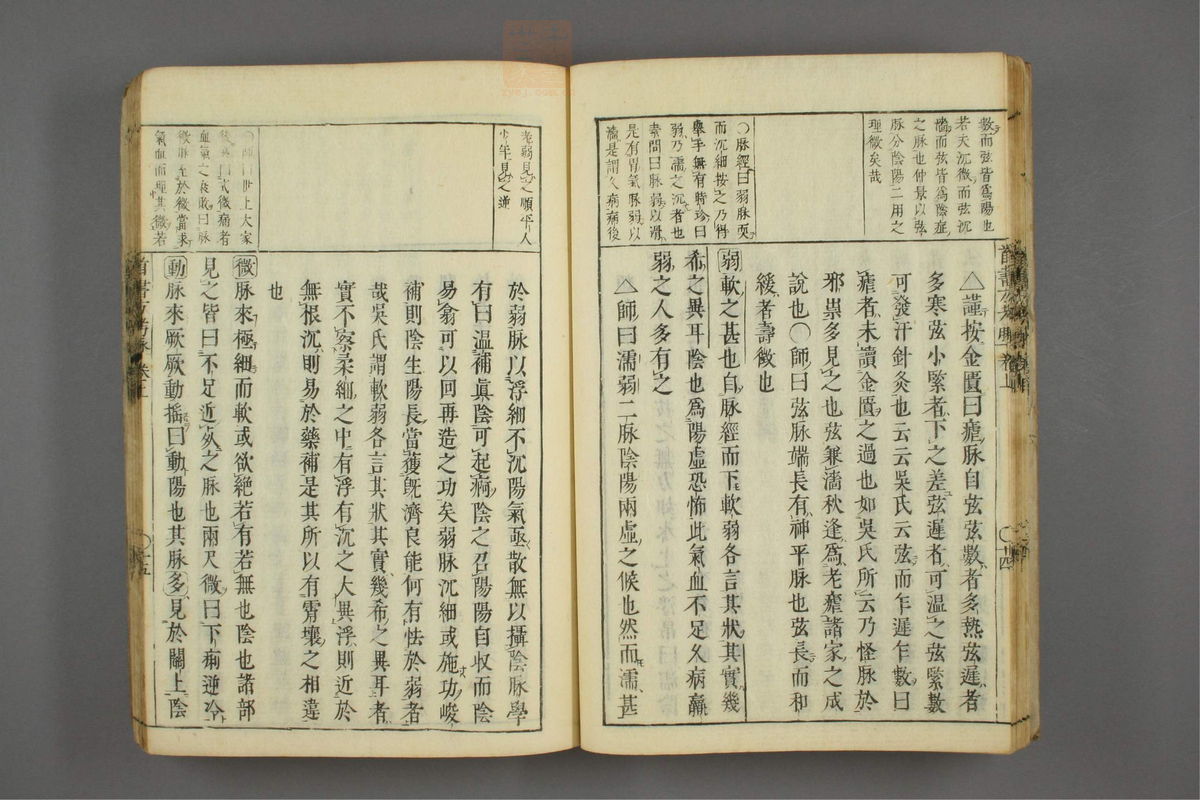 數而弦皆爲陽也
若夫沉微而弦沉
濇而弦皆爲陰症
之脉也仲景以弦
脉分陰陽二用之
理微矣哉
○脉經曰弱脉耎
而沉細按之乃得
舉手無有時珍曰
弱乃濡之沉者也
素問曰脉弱以滑
是有胃氣脉弱以
濇是謂久病病後
△謹按金匱曰瘧脉自弦弦數者多熱弦遲者
多寒弦小緊者下之差弦遲者可溫之弦緊數
可發汗針灸也云云吳氏云弦而乍遲乍數曰
瘧者未讀金匱之過也如吳氏所云乃怪脉於
邪祟多見之也弦兼濇秋逢爲老瘧諸家之成
說也○師曰弦脉端長有神平脉也弦長而和
緩者壽徵也
弱軟之甚也自脉經而下軟弱各言其狀其實幾
希之異耳陰也爲陽虛恐怖此氣血不足久病羸
弱之人多有之
△師曰濡弱二脉陰陽兩虛之候也然而濡甚
老弱見之順平人
少年見之逆
師曰世上大家
血氣之衰敗曰脉
微脉至於微當求
氣血而理其微若
於弱脉以浮細不沉陽氣亟散無以攝陰脉學
有曰溫補眞陰可起痾陰之召陽陽自收而陰
易翕可以回再造之功矣弱脉沉細或施功峻
補則陰生陽長當獲旣濟良能何有怯於弱者
哉吳氏謂軟弱各言其狀其實幾希之異耳者
實不察柔細之中有浮有沉之大異浮則近於
無根沉則易於藥補是其所以有霄壤之相違
也
微脉來極細而軟或欲絕若有若無也陰也諸部
見之皆曰不足近死之脉也兩尺微曰下痢逆冷
動脉來厥厥動搖曰動陽也其脉多見於關上陰